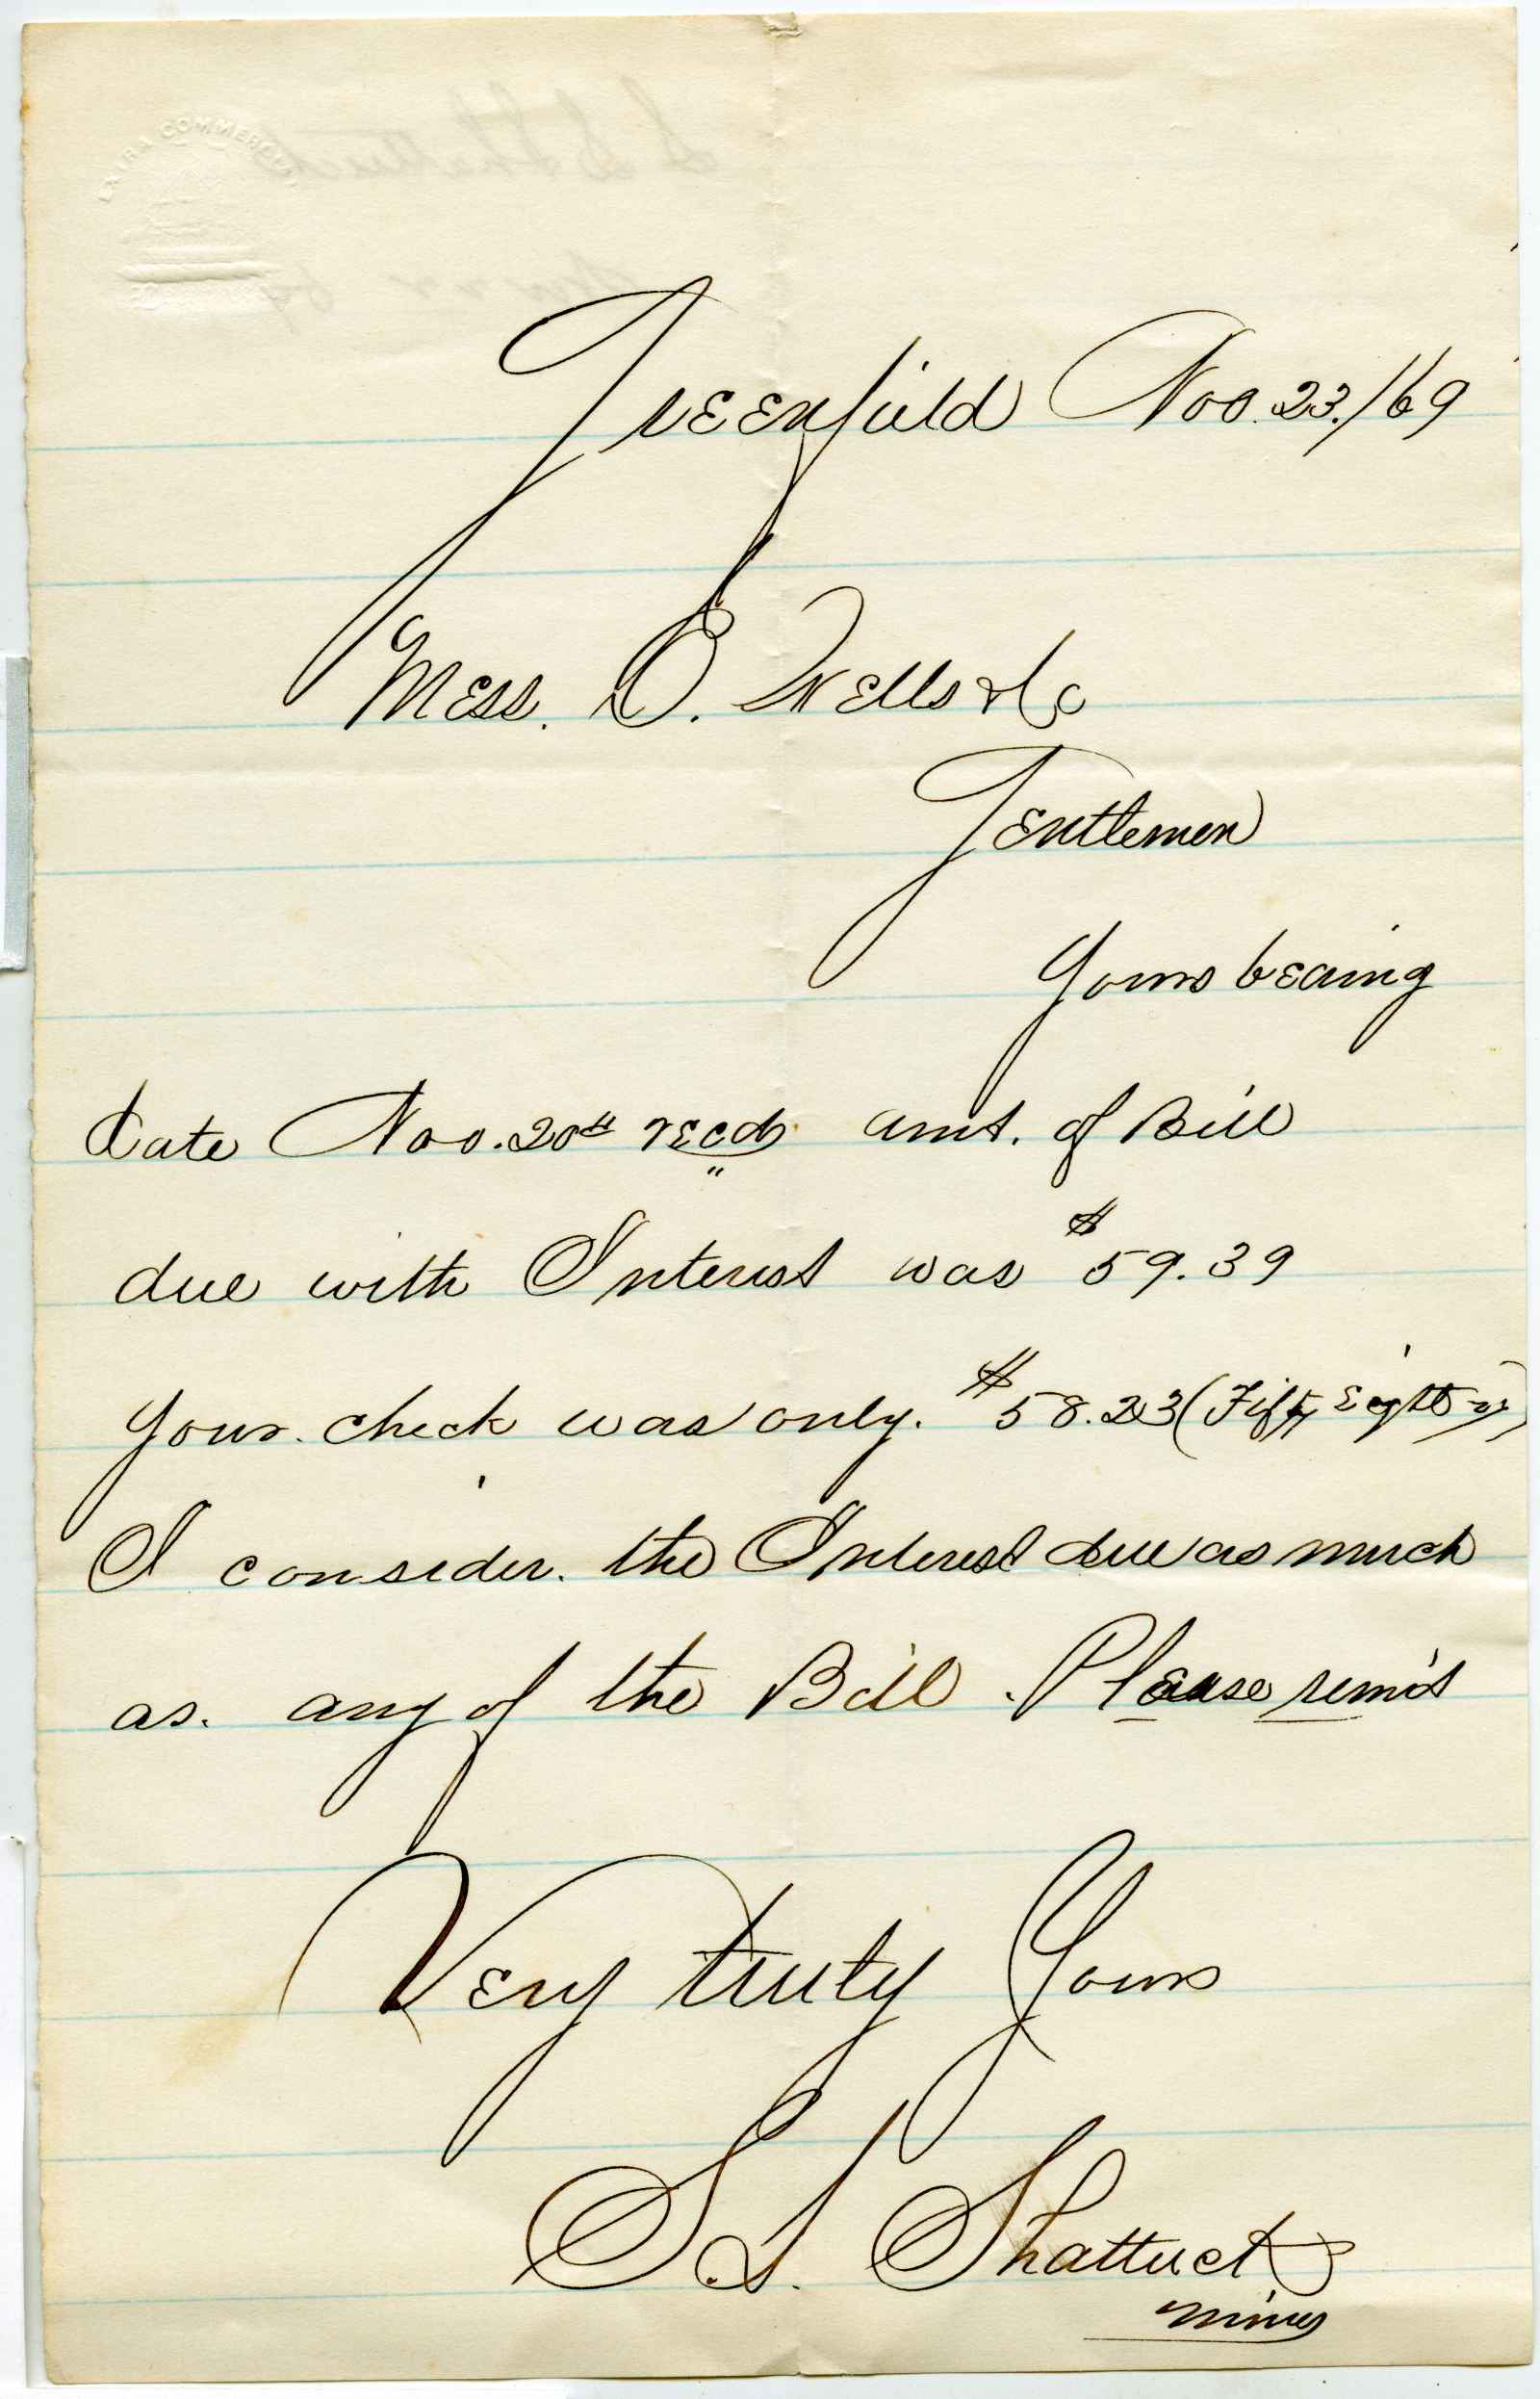 EXTRA COMMERCIAL
Greenfield Nov. 23./69
Mess. O. Wells & Co
Gentlemen
Yours bearing
date Nov. 20th recd. amt. of Bill
due with Interest was $59.39
Your check was only. $58.23 (Fifty Eight 23)
I consider. the Interest due as much
as. any of the Bill. Please remit
Very truly Yours
S. S. Shattuck